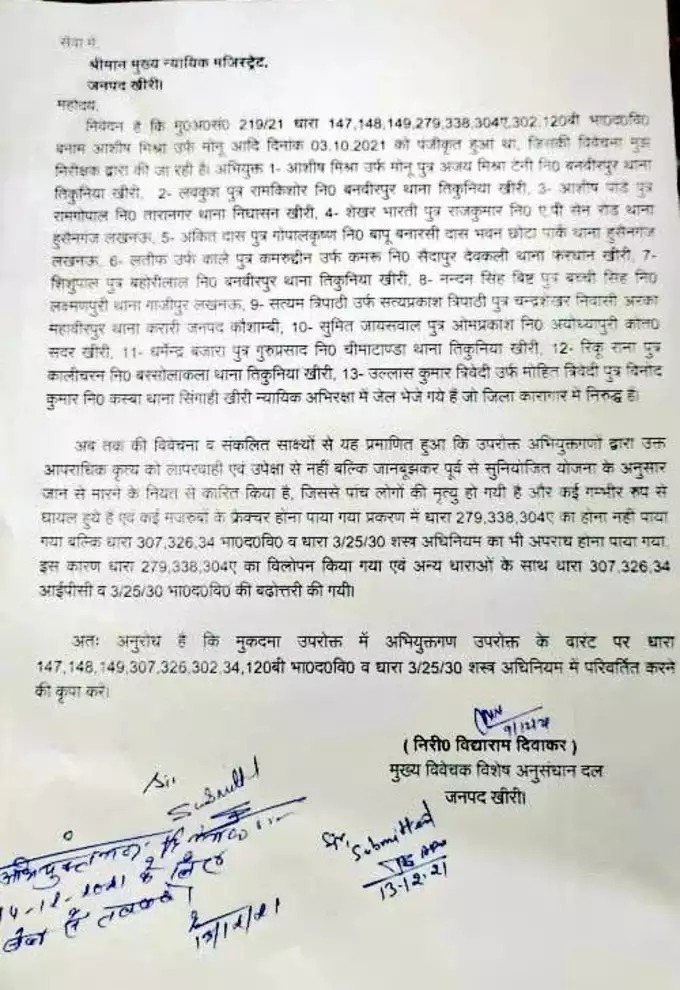 सेवा मे,
श्रीमान मुख्य न्यायिक मजिस्ट्रेट,
जनपद खीरी।
महोदय,
निवेदन है कि मु०अ०सं० 219/21 धारा 147,148,149,279,338,304ए,302,120बी भा०द०वि०
बनाम आशीष मिश्रा उर्फ मोनू आदि दिनांक 03.10.2021 को पंजीकृत हुआ था, जिसकी विवेचना मुझ
निरीक्षक द्वारा की जा रही है। अभियुक्त 1- आशीष मिश्रा उर्फ मोनू पुत्र अजय मिश्रा टेनी नि० बनवीरपुर थाना
तिकुनिया खीरी, 2- लवकुश पुत्र रामकिशोर नि० बनवीरपुर थाना तिकुनिया खीरी, 3- आशीष पांडे पुत्र
रामगोपाल नि० तारानगर थाना निघासन खीरी, 4- शेखर भारती पुत्र राजकुमार नि० ए.पी सेन रोड थाना
हुसैनगंज लखनऊ, 5- अंकित दास पुत्र गोपालकृष्ण नि० बापू बनारसी दास भवन छोटा पार्क थाना हुसैनगंज
लखनऊ, 6- लतीफ उर्फ काले पुत्र कमरुद्दीन उर्फ कमरू नि० सैदापुर देवकली थाना फरधान खीरी, 7-
शिशुपाल पुत्र बहोरीलाल नि० बनवीरपुर थाना तिकुनिया खीरी, 8- नन्दन सिंह बिष्ट पुत्र बच्ची सिंह नि०
लक्ष्मणपुरी थाना गाजीपुर लखनऊ, 9- सत्यम त्रिपाठी उर्फ सत्यप्रकाश त्रिपाठी पुत्र चन्द्रशेखर निवासी अरका
महावीरपुर थाना करारी जनपद कौशाम्बी, 10- सुमित जायसवाल पुत्र ओमप्रकाश नि० अयोध्यापुरी कोत०
सदर खीरी, 11- धर्मेन्द्र बंजारा पुत्र गुरुप्रसाद नि० चीमाटाण्डा थाना तिकुनिया खीरी, 12- रिंकू राना पुत्र
कालीचरन नि० बरसोलाकला थाना तिकुनिया खीरी, 13- उल्लास कुमार त्रिवेदी उर्फ मोहित त्रिवेदी पुत्र विनोद
कुमार नि० कस्बा थाना सिंगाही खीरी न्यायिक अभिरक्षा में जेल भेजे गये हैं जो जिला कारागार में निरुद्ध हैं।
अब तक की विवेचना व संकलित साक्ष्यों से यह प्रमाणित हुआ कि उपरोक्त अभियुक्तगणों द्वारा उक्त
आपराधिक कृत्य को लापरवाही एवं उपेक्षा से नहीं बल्कि जानबूझकर पूर्व से सुनियोजित योजना के अनुसार
जान से मारने के नियत से कारित किया है, जिससे पांच लोगों की मृत्यु हो गयी है और कई गम्भीर रुप से
घायल हुये हैं एवं कई मजरुबों के फ्रेक्चर होना पाया गया प्रकरण में धारा 279,338,304ए का होना नही पाया
गया बल्कि धारा 307,326,34 भा०द०वि० व धारा 3/25/30 शस्त्र अधिनियम का भी अपराध होना पाया गया,
इस कारण धारा 279,338,304ए का विलोपन किया गया एवं अन्य धाराओं के साथ धारा 307,326,34
आईपीसी व 3/25/30 भा०द०वि० की बढोत्तरी की गयी।
अतः अनुरोध है कि मुकदमा उपरोक्त में अभियुक्तगण उपरोक्त के वारंट पर धारा
147,148,149,307,326,302,34,120बी भा०द०वि० व धारा 3/25/30 शस्त्र अधिनियम में परिवर्तित करने
की कृपा करें।
( निरी० विद्याराम दिवाकर )
मुख्य विवेचक विशेष अनुसंधान दल
जनपद खीरी।
Sir
Submitted
अभियुक्तगण
14-12-2021 के लिए
जेल से तलब हो।
13/12/21
Sir,
Submitted
13.12.21